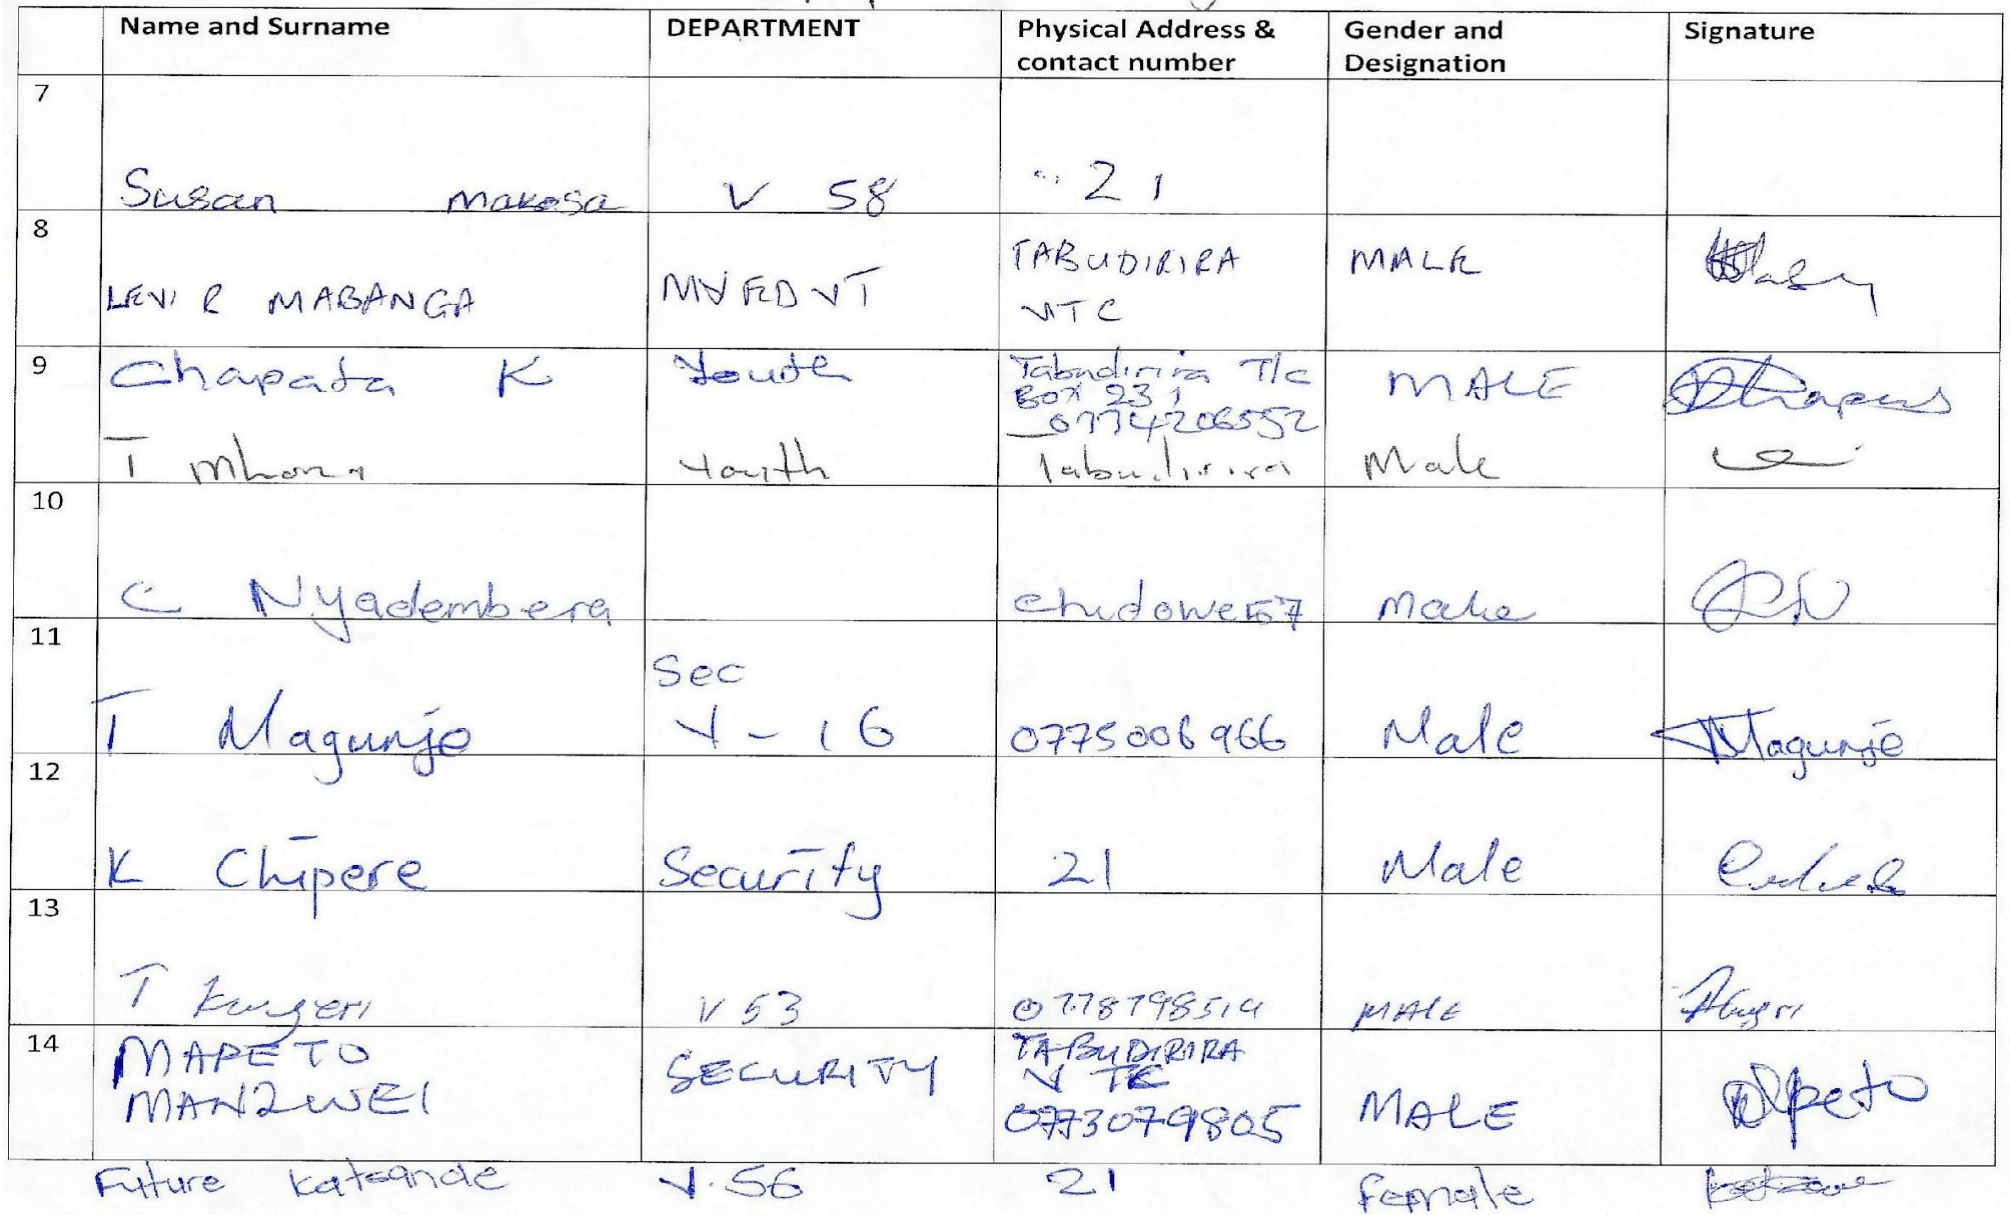 Name and Surname DEPARTMENT Physical Address & contact number Gender and Designation Signature
7 Susan Makosa V 58 " 21
8 LEVI R MABANGA MVEDVT TABUDIRIRA VTC MALE
9 Chapata K Youth Tabudirira T/c BOX 231 0774206552 MALE
T Mhona Youth Tabudirira Male
10 C Nyadembera Chidowe 57 Male
11 T Magunje Sec V-16 0775006966 Male Magunje
12 K Chipere Security 21 Male
13 T Kungeri V 53 MALE
14 MAPETO MANZWEI SECURITY TABUDIRIRA V TC 0773079805 MALE Mpeto
Future Katsande V.56 21 Female